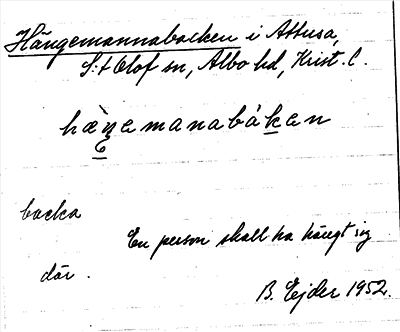 Hängemannabacken i Attusa,
S:t Olof sn, Albo hd, Krist. l.
hæŋemanabåken
backa
En person skall ha hängt sig
där.
B. Ejder 1952.